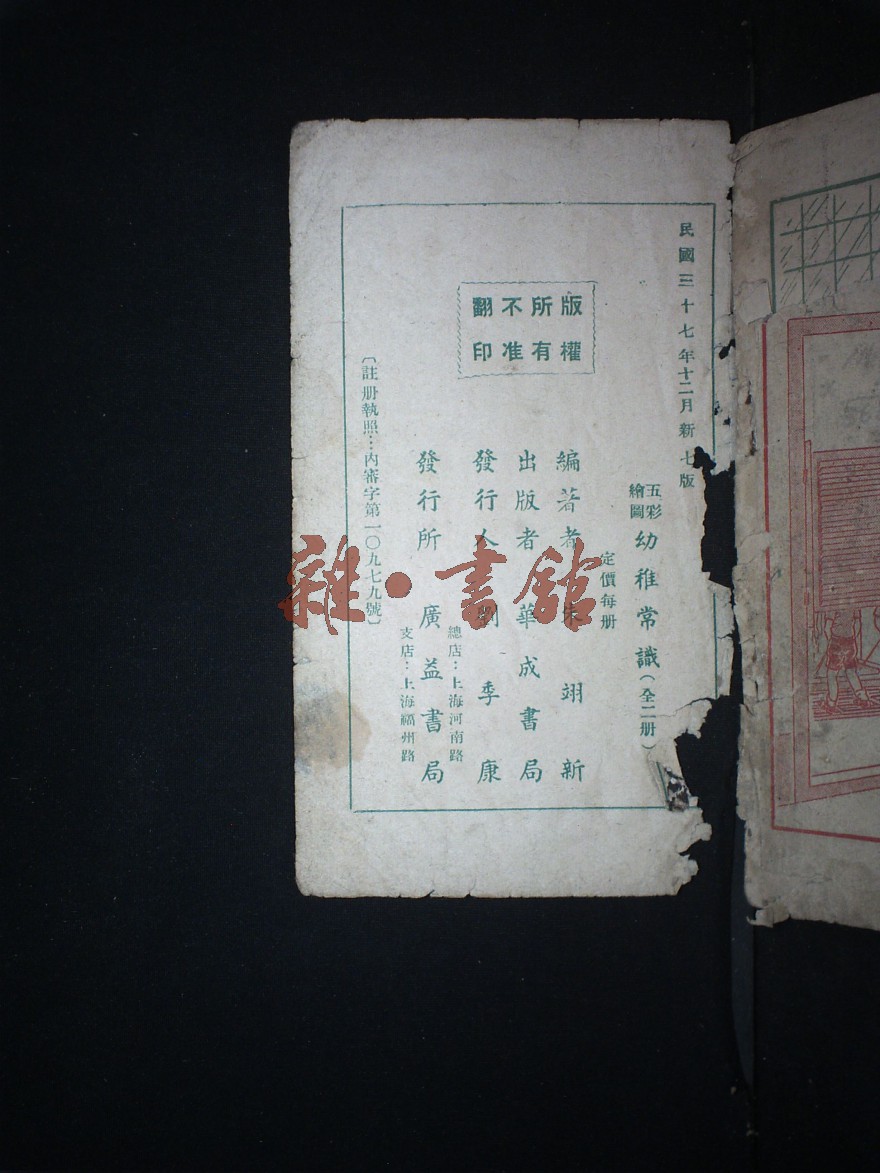 民國三十七年十二月新七版
五彩
繪圖
幼稚常識(全二册)
定價每册
版權
所有
不准
翻印
編著者 朱翊新
出版者 華成書局
發行人 劉季康
發行所 廣益書局
總店:上海河南路
支店:上海福州路
〔註册執照…內審字第一〇九七九號〕
雜·書館